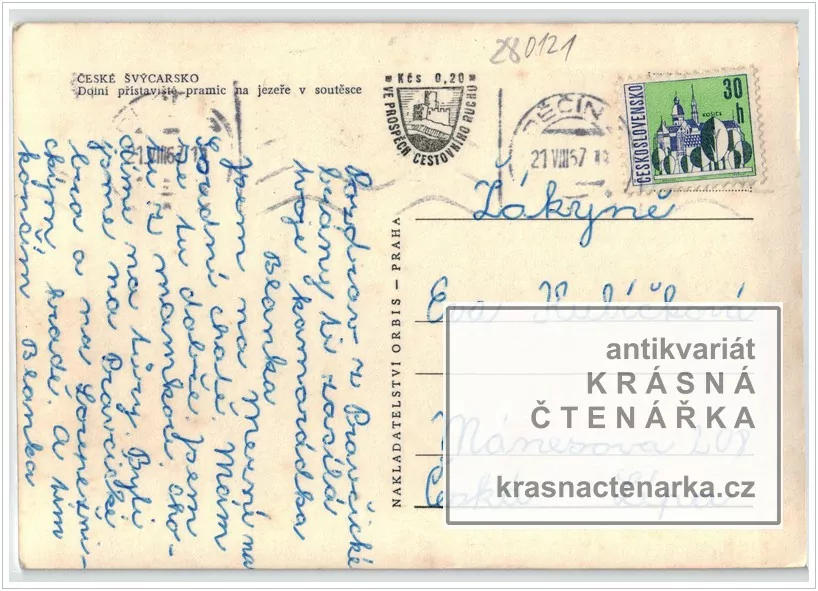 280121
ČESKÉ ŠVÝCARSKO
Dolní přístaviště pramic na jezeře v soutěsce
Kčs 0,20
VE PROSPĚCH CESTOVNÍHO RUCHU
DĚČÍN
21.VIII.67
21.VIII.67
ČESKOSLOVENSKO
30 h
KOŠICE
Pozdrav z Pravčické
brány ti zasílá
tvoje kamarádka
Blanka
Jsem na Mezní na
Sradní chatě. Mám
se tu dobře. Jsem
tu z mamkou, cho-
díme na túry. Byli
jsme na Pravčické
bra a na
hradě. A tím
končím
Blanka
NAKLADATELSTVÍ ORBIS — PRAHA
Žákyně
Eva Kubíčková
Mánesova 208
Česká Lípa
antikvariát
KRÁSNÁ
ČTENÁŘKA
krasnactenarka.cz